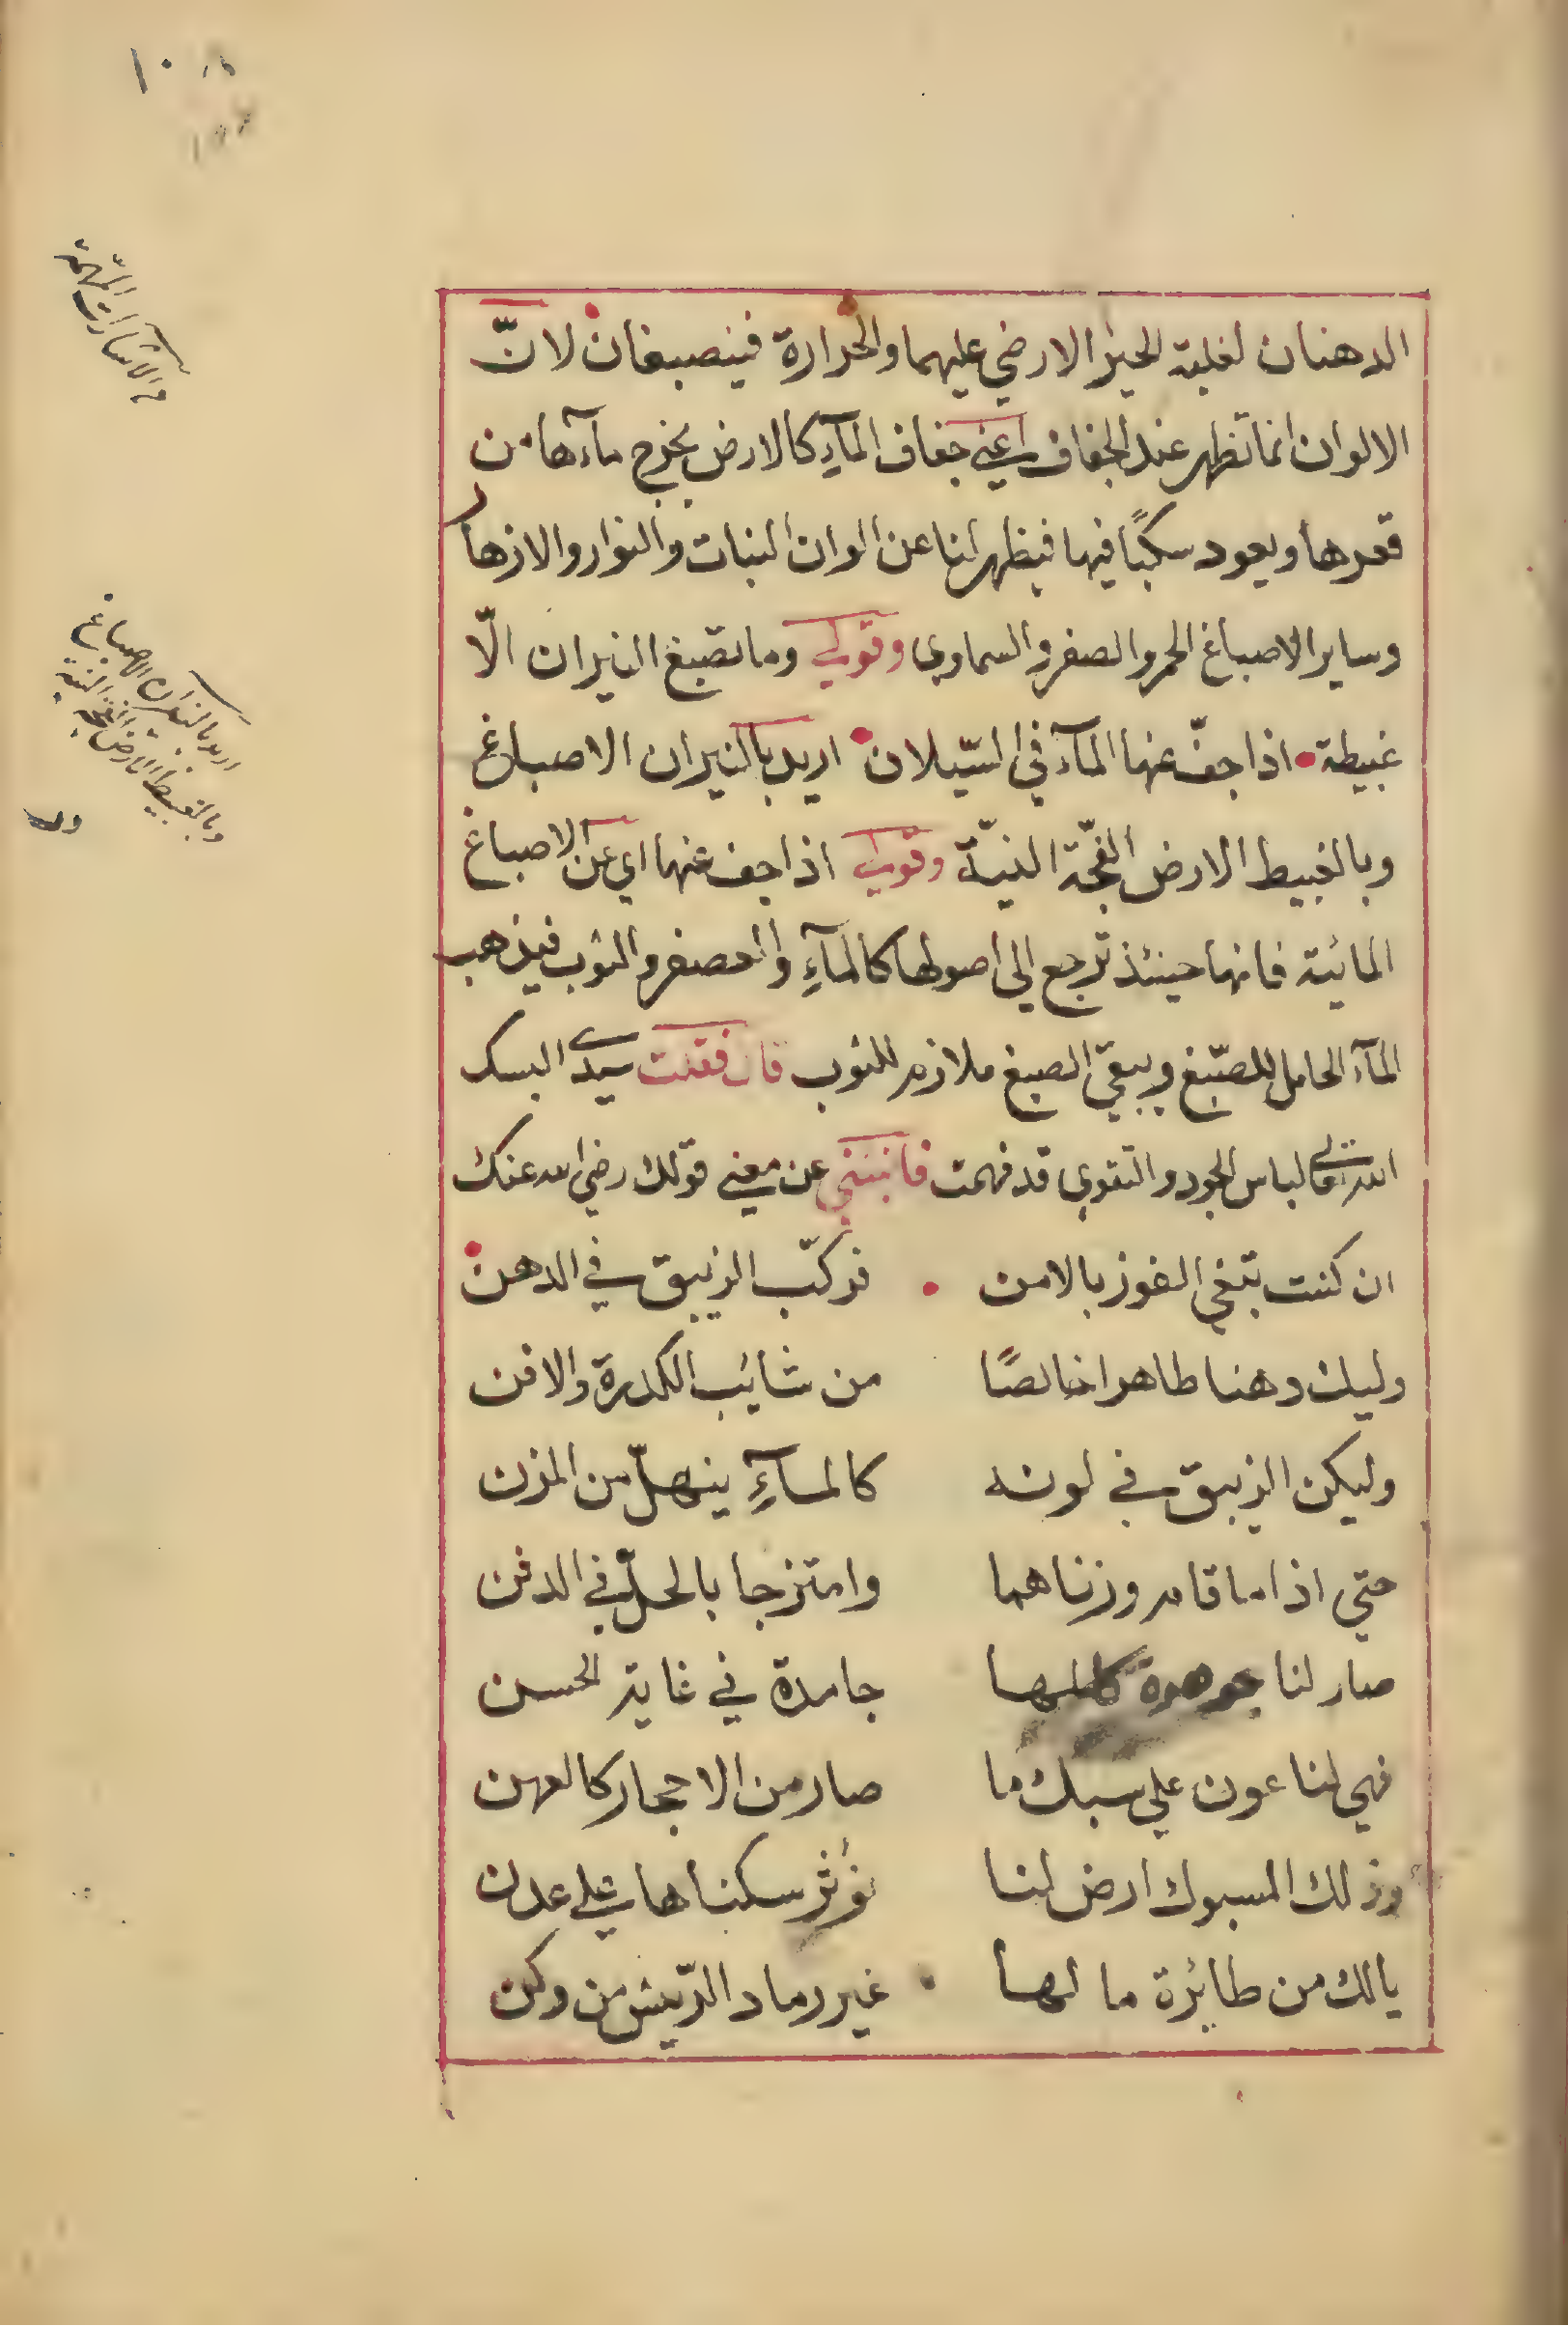 الدهنان لغلبة الحيز الارضي عليهما والحرارة فينصبغان لانّ
الالوان انما تظهر عند الجفاف اعني جفاف المآءِ كالارض يخرج مآءها من
قعرها ويعود سكبًا فيها فيظهر لنا عن الوان النبات والنوار والازهار
وساير الاصباغ الحمر والصفر والسماوي وقولي وما تصبغ النيران الّا
غبيطة اذا جفّ عنها المآء في السّيلان اريد بالنيران الاصباغ
وبالغبيط الارض الفجّة النيّة وقولي اذا جف عنها اي عن الاصباغ
المائية فانها حينئذ ترجع الي اصولها كالمآءِ والعصفر والثوب فيذهب
المآء الحامل للصّبغ ويبقي الصبغ ملازم للثوب قال فقلت سيدي البسك
الله تعالي لباس الجود والتقوي قد فهمت فانبئني عن معني قولك رضي الله عنك
ان كنت تبغي الفوز بالامن فركّب الزيبق في الدهن
وليك دهنا طاهرا خالصًا من شايَب الكدرة والافن
وليكن الزيبق في لونه كالمآءِ ينهلّ من المزن
حتي اذا ما قام وزناهما وامتزجا بالحلّ في الدفن
صار لنا جوهرة كلها جامدة في غاية الحسن
فهي لنا عون علي سبك ما صار من الاحجار كالعهن
وذلك المسبوك ارض لنا نؤثر سكناها علي عدن
يالك من طائرة ما لها غير رماد الرّيش من وكن
١٠
والاشارات المهمة
اريد بالنيران الاصباغ
وبالغبيط الارض الفجة النية